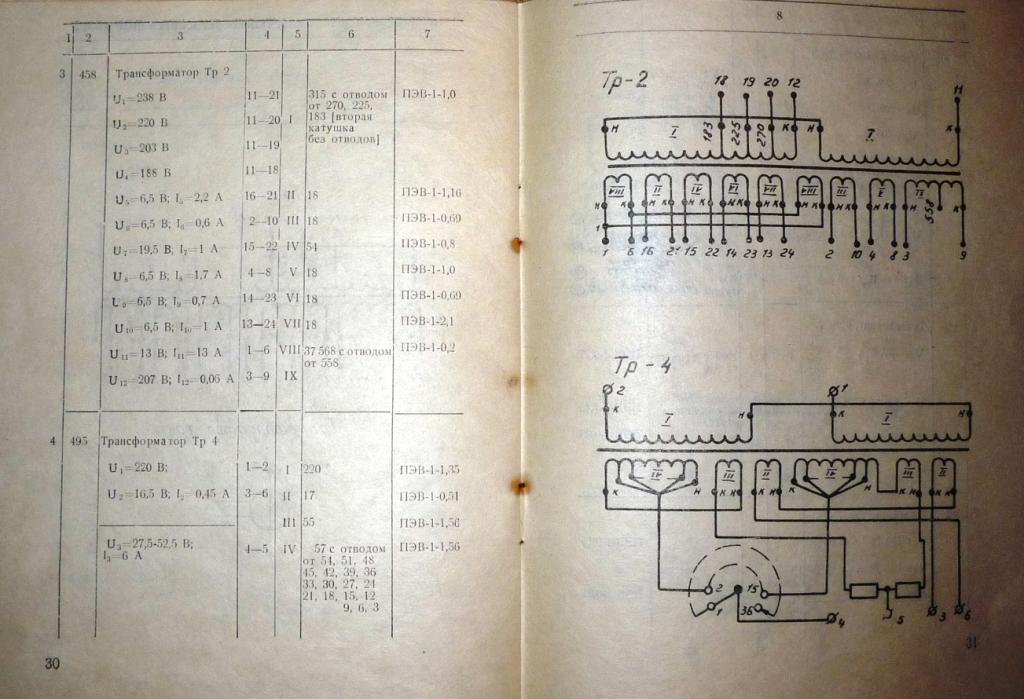 1 2 3 4 5 6 7
3 458 Трансформатор Тр 2
U₁=238 В 11—21 315 с отводом ПЭВ-1-1,0
от 270, 225,
U₂=220 В 11—20 I 183 [вторая
катушка
без отводов]
U₃=203 В 11—19
U₄=188 В 11—18
U₅=6,5 В; I₅=2,2 А 16—21 II 18 ПЭВ-1-1,16
U₆=6,5 В; I₆=0,6 А 2—10 III 18 ПЭВ-1-0,69
U₇=19,5 В; I₇=1 А 15—22 IV 54 ПЭВ-1-0,8
U₈=6,5 В; I₈=1,7 А 4—8 V 18 ПЭВ-1-1,0
U₉=6,5 В; I₉=0,7 А 14—23 VI 18 ПЭВ-1-0,69
U₁₀=6,5 В; I₁₀=1 А 13—24 VII 18 ПЭВ-1-2,1
U₁₁=13 В; I₁₁=13 А 1—6 VIII 37 568 с отводом ПЭВ-1-0,2
от 558
U₁₂=207 В; I₁₂=0,06 А 3—9 IX
4 495 Трансформатор Тр 4
U₁=220 В; 1—2 I 220 ПЭВ-1-1,35
U₂=16,5 В; I₂=0,45 А 3—6 II 17 ПЭВ-1-0,51
III 55 ПЭВ-1-1,56
U₃=27,5-52,5 В; 4—5 IV 57 с отводом ПЭВ-1-1,56
I₃=6 А от 54, 51, 48
45, 42, 39, 36
33, 30, 27, 24
21, 18, 15, 12
9, 6, 3
30
8
Тр-2
18 19 20 12 11
н I 183 225 270 к н I к
VIII II IV VI VII VIII III V IX 558
н к н к н к н к н к н к н к н к н к
1
1 6 16 21 15 22 14 23 13 24 2 10 4 8 3 9
Тр-4
2 1
к I н к I н
IV III II IV III II
к н к н к н к н к н к н
2 15
1 36 4 5 3 6
31